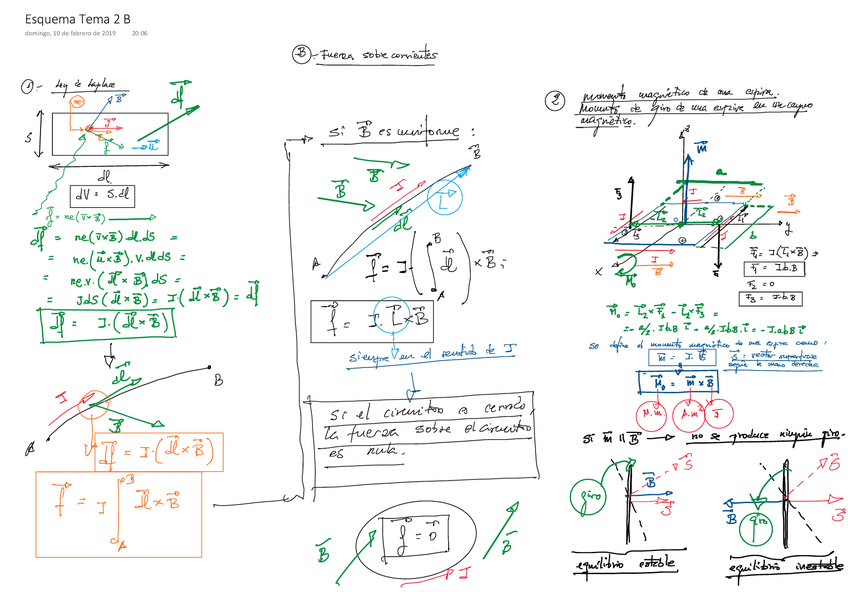 Esquema Tema 2 B
domingo, 10 de febrero de 2019 20:06
B.- Fuerza sobre corrientes
1.- Ley de Laplace
ne
B
dl
J
S
f
u
dl
dV = S.dl
f = ne(v×B)
df = ne(v×B) dl.dS =
= ne.(u×B).v.dl dS =
= ne.v.(dl×B) dS =
= J dS (dl×B) = I.(dl×B) = df
df = I.(dl×B)
dl
I
B
B
A
df = I.(dl×B)
f = I ∫ dl×B
B
A
si B es uniforme :
B
B
B
I
L
dl
A
f = I.(∫ dl)×B =
B
A
f = I.L×B
siempre en el sentido de I
Si el circuito es cerrado,
la fuerza sobre el circuito
es nula.
f = 0
B
B
I
2 momento magnético de una espira.
Momento de giro de una espira en un campo
magnético.
z
m
a
F3
I
B
B
y
b
x
I
B
M0
F1
F1 = I(L1×B) ⇒
F1 = I.b.B
F2 = 0
F3 = I.b.B
M0 = L2×F1 - L2×F3 =
= - a/2.IbB i - a/2.IbB.i = - I.abB i
Se define el momento magnético de una espira como:
m = I.S
S: vector superficie
según la mano derecha
M0 = m×B
si m || B → no se produce ningún giro.
giro
B
S
S
B
giro
S
S
equilibrio estable
equilibrio inestable